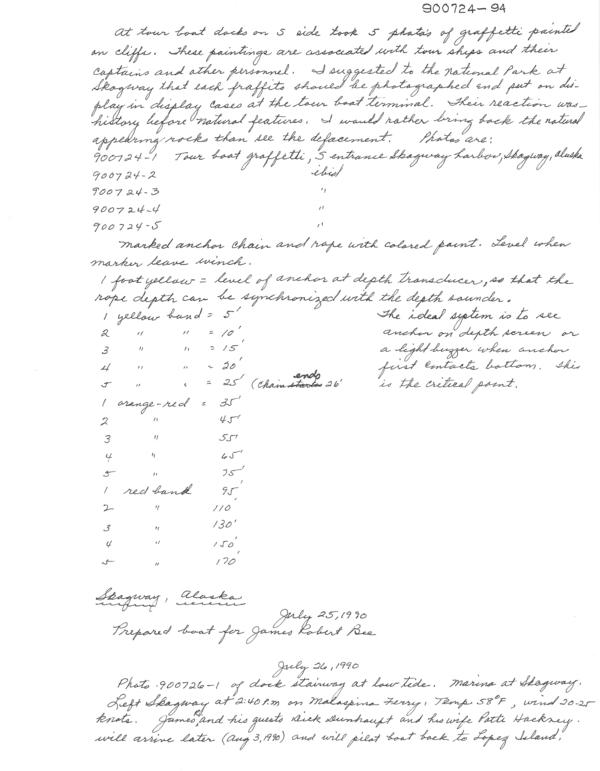 900724-94
At tour boat docks on S side took 5 photos of graffetti painted
on cliffs. These paintings are associated with tour ships and their
captains and other personnel. I suggested to the National Park at
Skagway that each graffito should be photographed and put on dis-
play in display cases at the tour boat terminal. Their reaction was-
history before natural features. I would rather bring back the natural
appearing rocks than see the defacement. Photos are:
900724-1 Tour boat graffetti, S entrance Skagway harbor, Skagway, Alaska
900724-2 ibid
900724-3 "
900724-4 "
900724-5 "
Marked anchor chain and rope with colored paint. Level when
marker leave winch.
1 foot yellow = level of anchor at depth transducer, so that the
rope depth can be synchronized with the depth sounder.
1 yellow band = 5'
2 " " = 10'
3 " " = 15'
4 " " = 20'
5 " " = 25' (chain starts ends 26'
The ideal system is to see
anchor on depth screen or
a light buzzer when anchor
first contacts bottom. This
is the critical point.
1 orange-red = 35'
2 " 45'
3 " 55'
4 " 65'
5 " 75'
1 red band 95'
2 " 110'
3 " 130'
4 " 150'
5 " 170'
Skagway, Alaska
July 25, 1990
Prepared boat for James Robert Bee
July 26, 1990
Photo 900726-1 of dock stairway at low tide. Marina at Skagway.
Left Skagway at 2:40 P.M on Malaspina Ferry. Temp 58°F, wind 20-25
knots. James and his guests Dick Dunhaupt and his wife Patte Hackney.
will arrive later (Aug 3, 1990) and will pilot boat back to Lopez Island.